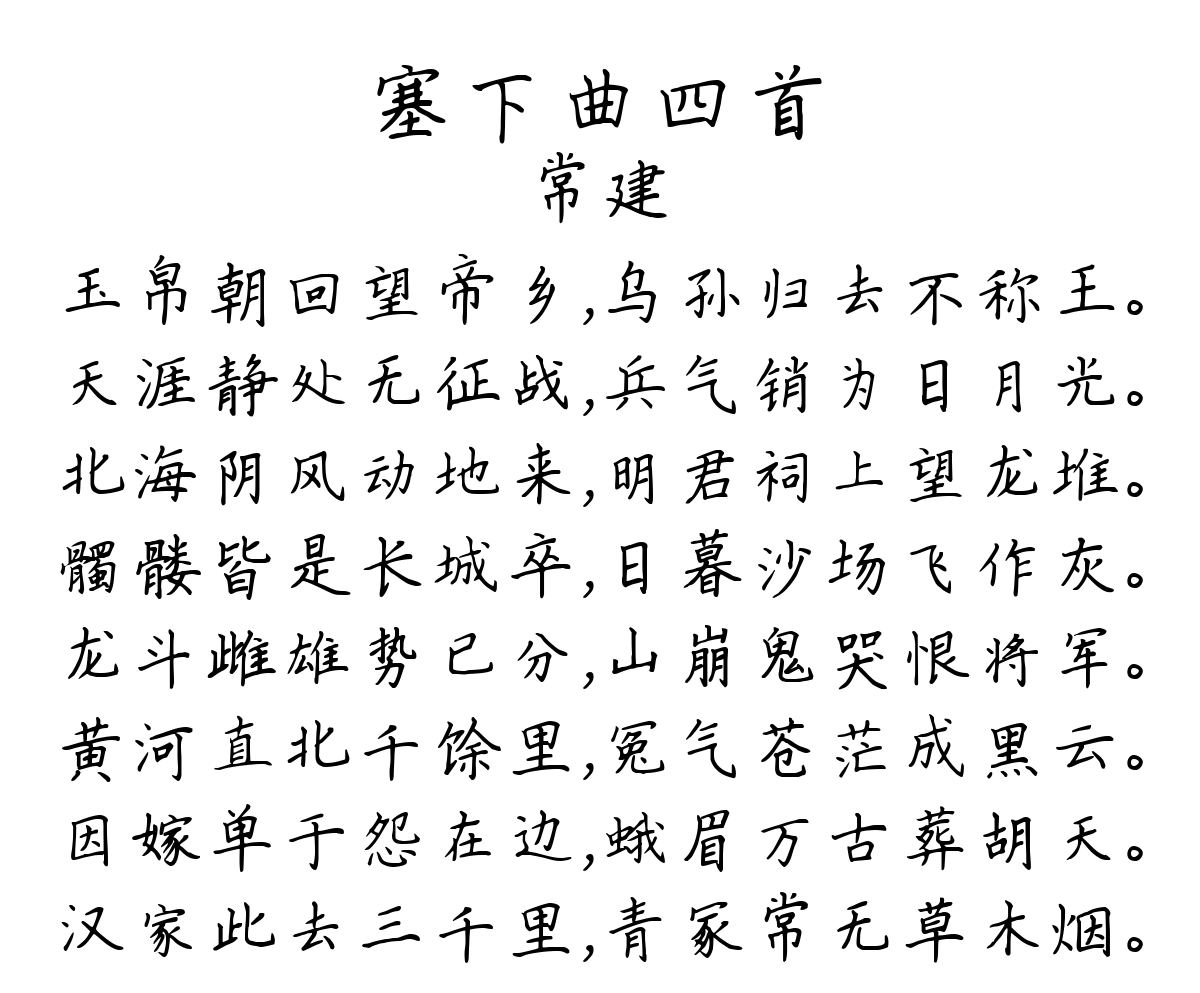 塞下曲四首
常建
玉帛朝回望帝乡,乌孙归去不称王。
天涯静处无征战,兵气销为日月光。
北海阴风动地来,明君祠上望龙堆。
髑髅皆是长城卒,日暮沙场飞作灰。
龙斗雌雄势已分,山崩鬼哭恨将军。
黄河直北千馀里,冤气苍茫成黑云。
因嫁单于怨在边,蛾眉万古葬胡天。
汉家此去三千里,青冢常无草木烟。